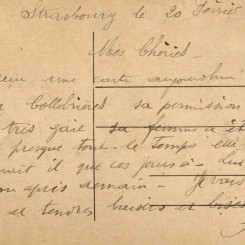 Strasbourg le 20 Février
Mes Chéries
une carte aujourd'hui
Collobrières sa permission
très gaie sa femme a ét
presque tout le temps elle
il que ces jours ci
après demain - Je vais
et tendres baisers et bises